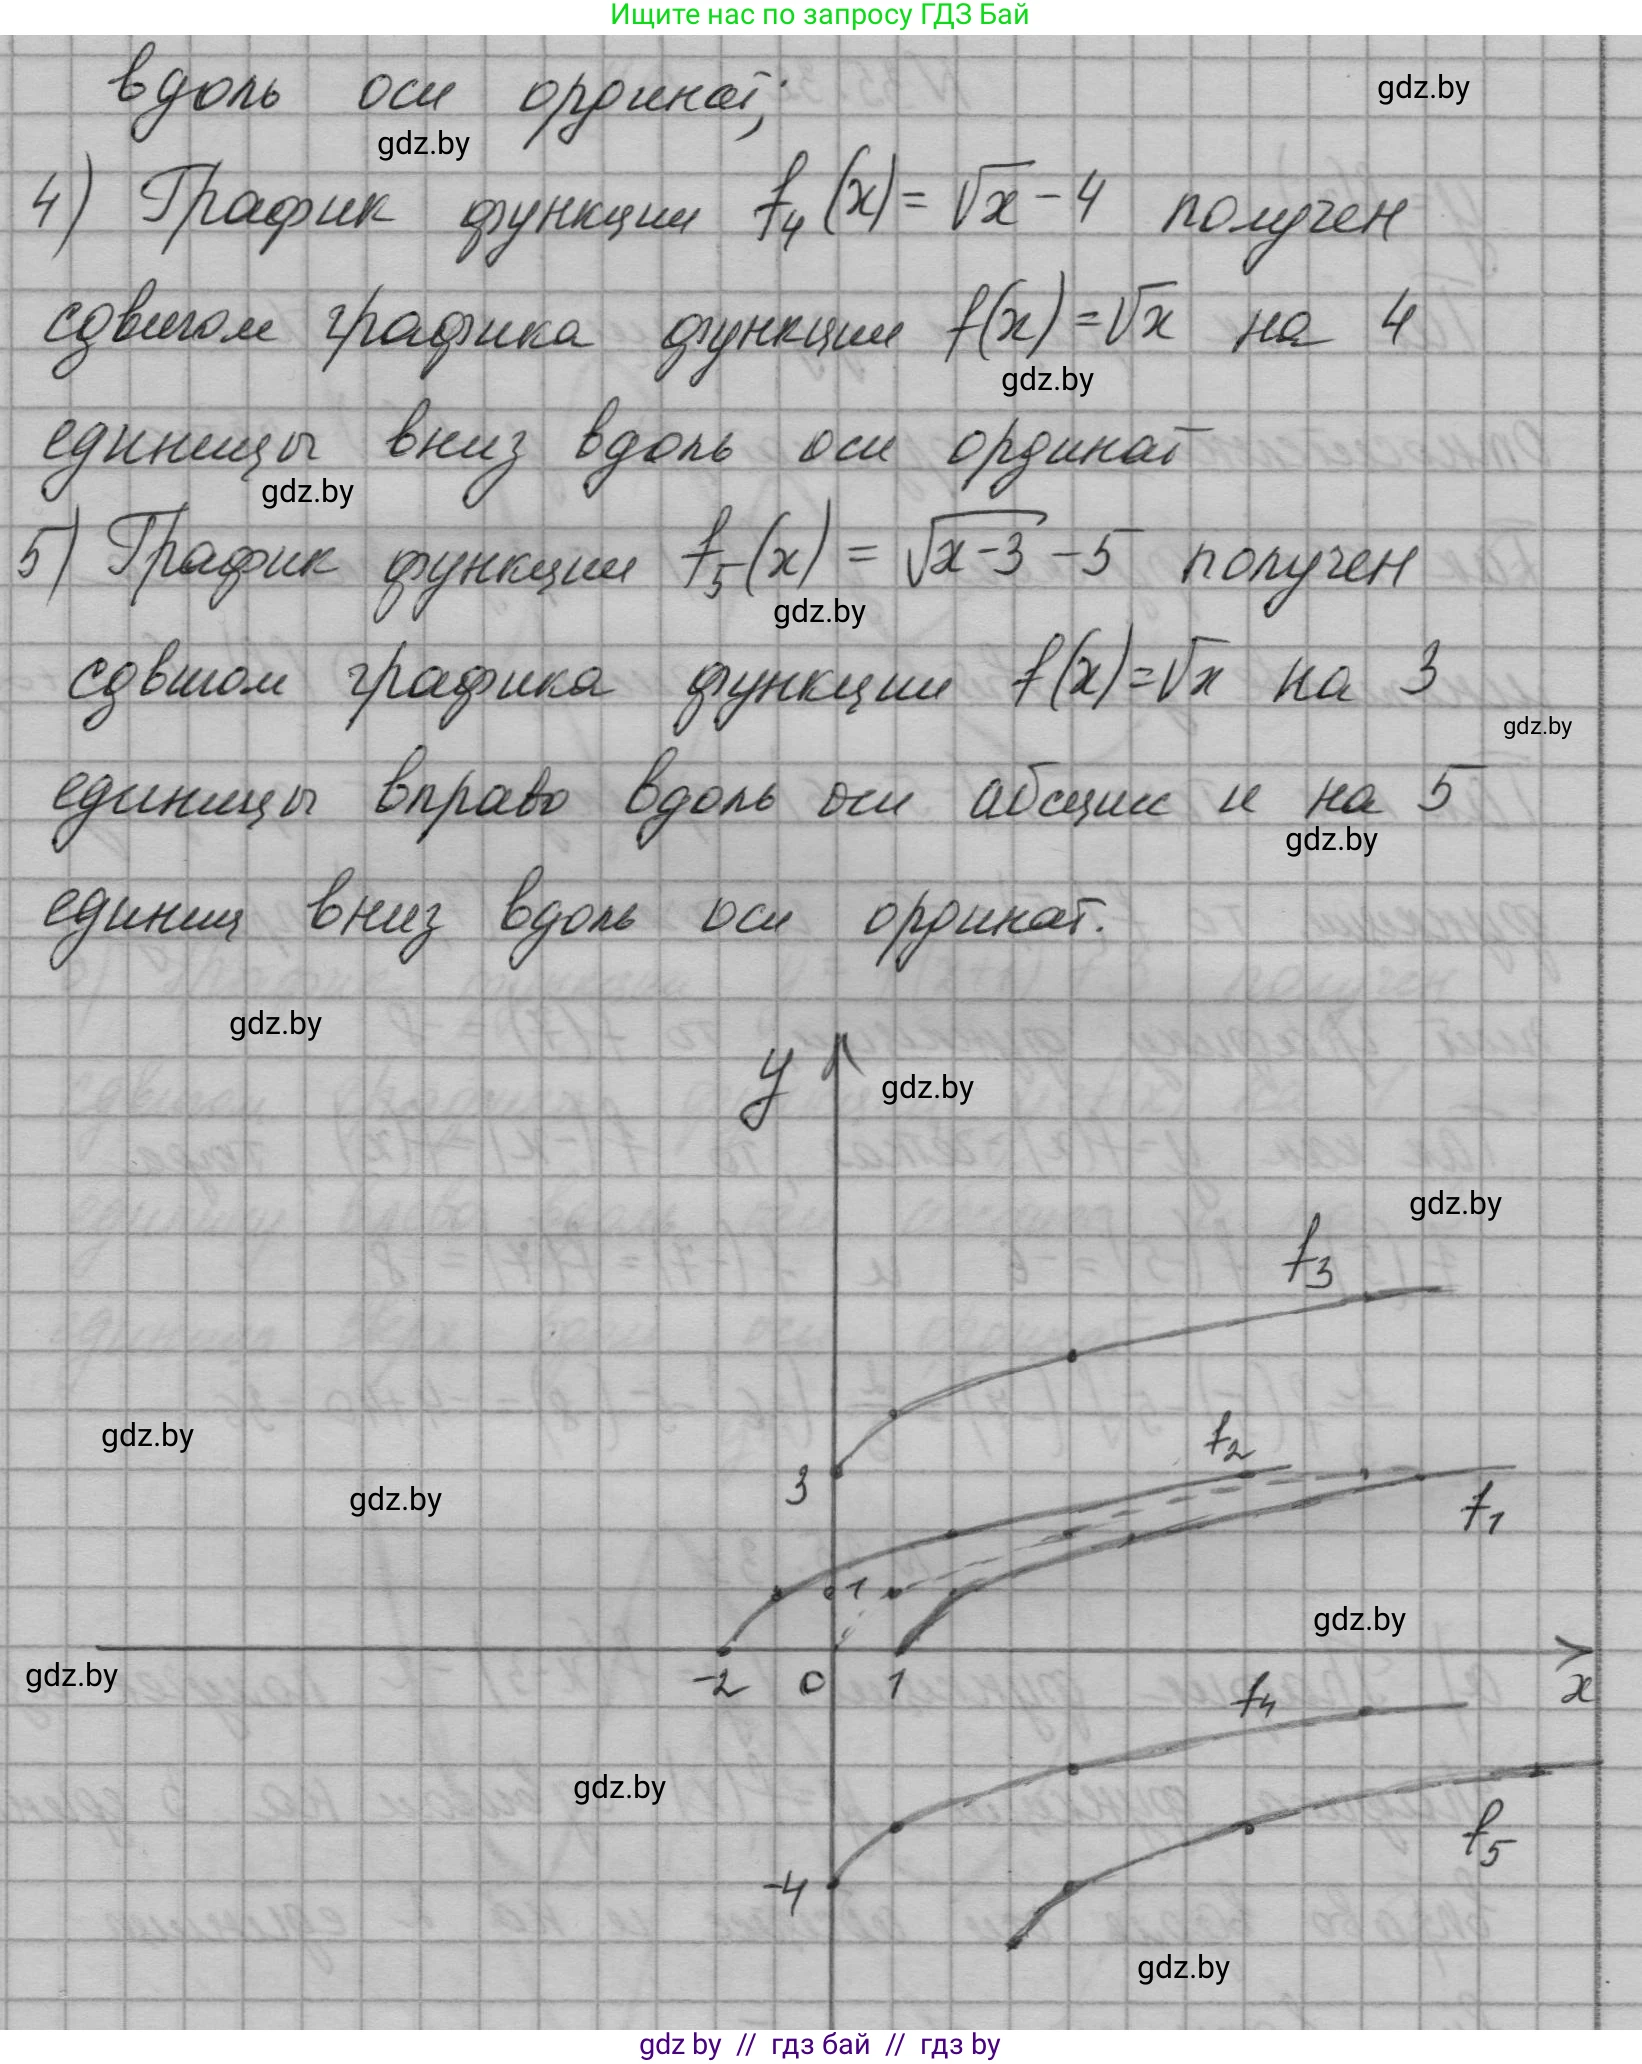 Ищите нас по запросу ГДЗ Бай
вдоль оси ординат;
gdz.by
gdz.by
4) График функции f₄(x) = √x - 4 получен
сдвигом графика функции f(x) = √x на 4
gdz.by
единицы вниз вдоль оси ординат
gdz.by
5) График функции f₅(x) = √(x-3) - 5 получен
gdz.by
сдвигом графика функции f(x) = √x на 3
gdz.by
единицы вправо вдоль оси абсцисс и на 5
gdz.by
единиц вниз вдоль оси ординат.
gdz.by
y
gdz.by
gdz.by
f₃
gdz.by
f₂
3
gdz.by
f₁
1
gdz.by
gdz.by
-2 0 1 x
f₄
gdz.by
f₅
-4
gdz.by
gdz by // гдз бай // гдз by